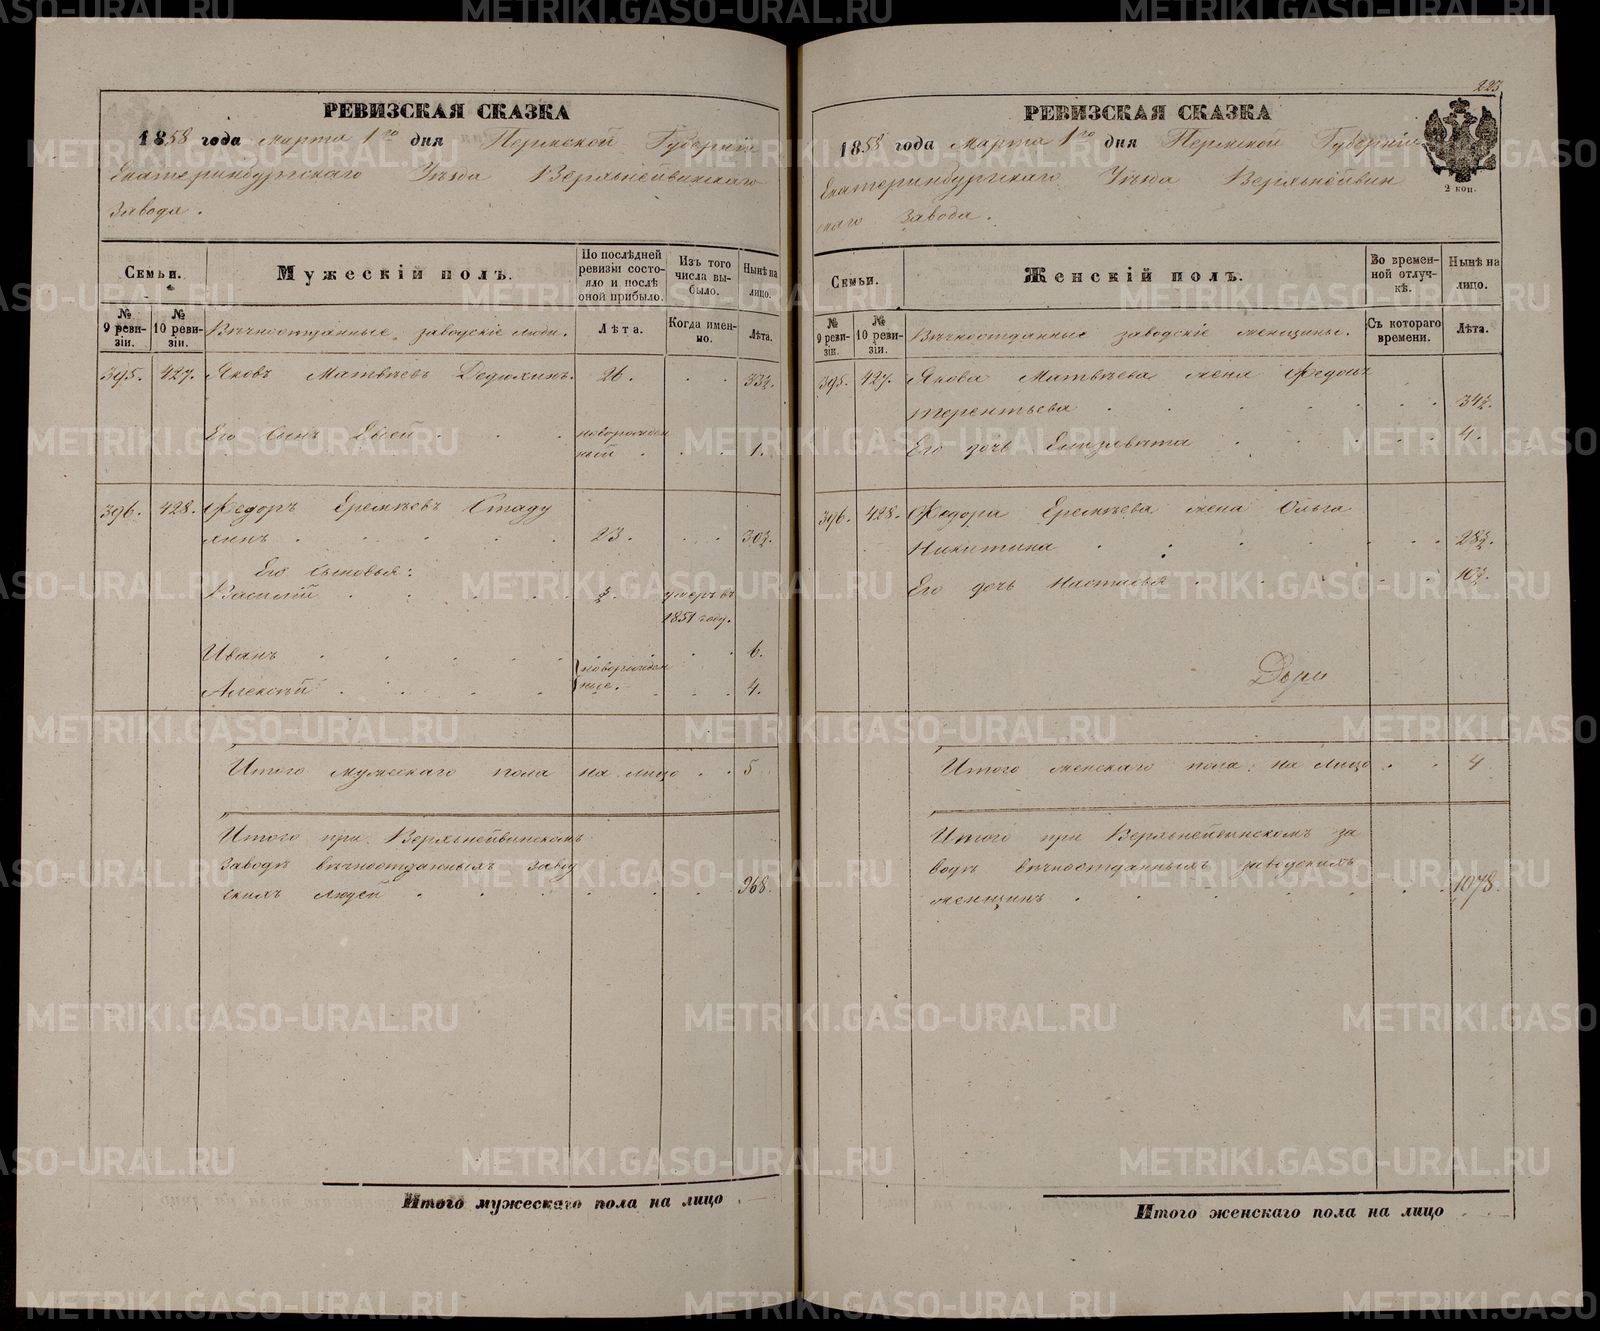 РЕВИЗСКАЯ СКАЗКА
1858 года марта 1го дня Пермской Губерніи
Екатеринбургскаго Уѣзда Верхънейвинскаго
завода.
Семьи.
Мужескій полъ.
По послѣдней ревизіи состояло и послѣ оной прибыло.
Изъ того числа выбыло.
Нынѣ на лицо.
№ 9 ревизіи.
№ 10 ревизіи.
Вѣчноотданные заводскіе люди.
Лѣта.
Когда именно.
Лѣта.
395. 427. Яковъ Матвѣевъ Дедюхинъ. 26. . . 33½.
Его сынъ . . . новорожден
ный . . . 1.
396. 428. Федоръ Еремѣевъ Стаду
хинъ . . . . . 23. . . 30½.
Его сыновья:
Василій . . . . ½. умеръ въ
1851 году.
Иванъ . . . . . . . 6.
новорожден
Алексѣй . . . . ные. . . 4.
Итого мужескаго пола на лицо . . 5
Итого при Верхънейвинскомъ
заводѣ вѣчноотданныхъ завод
скихъ людей . . . . . . 968.
Итого мужескаго пола на лицо
223
РЕВИЗСКАЯ СКАЗКА
1858 года марта 1го дня Пермской Губерніи
Екатеринбургскаго Уѣзда Верхънейвин
скаго завода.
2 коп.
Семьи.
Женскій полъ.
Во временной отлучкѣ.
Нынѣ на лицо.
№ 9 ревизіи.
№ 10 ревизіи.
Вѣчноотданные заводскіе женщины.
Съ котораго времени.
Лѣта.
395. 427. Якова Матвѣева жена
терентьева . . . . . . 34½.
Его дочь Елизавета . . . . . 4.
396. 428. Федора Еремѣева жена Ольга
Никитина . . . . . . 28½.
Его дочь Настасья . . . . . 10½.
Итого женскаго пола на лицо . . 4
Итого при Верхънейвинскомъ за
водѣ вѣчноотданныхъ заводскихъ
женщинъ . . . . . . 1078.
Итого женскаго пола на лицо
METRIKI.GASO-URAL.RU